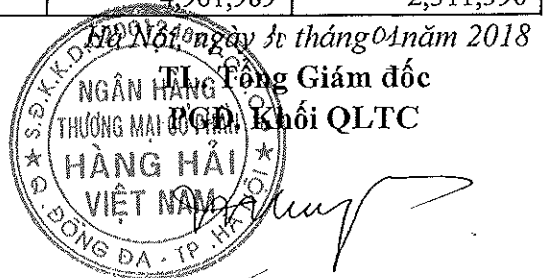 2,311,390
Hà Nội, ngày tháng 01 năm 2018
TL. Tổng Giám đốc
PGĐ. Khối QLTC
NGÂN HÀNG
THƯƠNG MẠI CỔ PHẦN
HÀNG HẢI
VIỆT NAM
Q. ĐỐNG ĐA - TP. HÀ NỘI